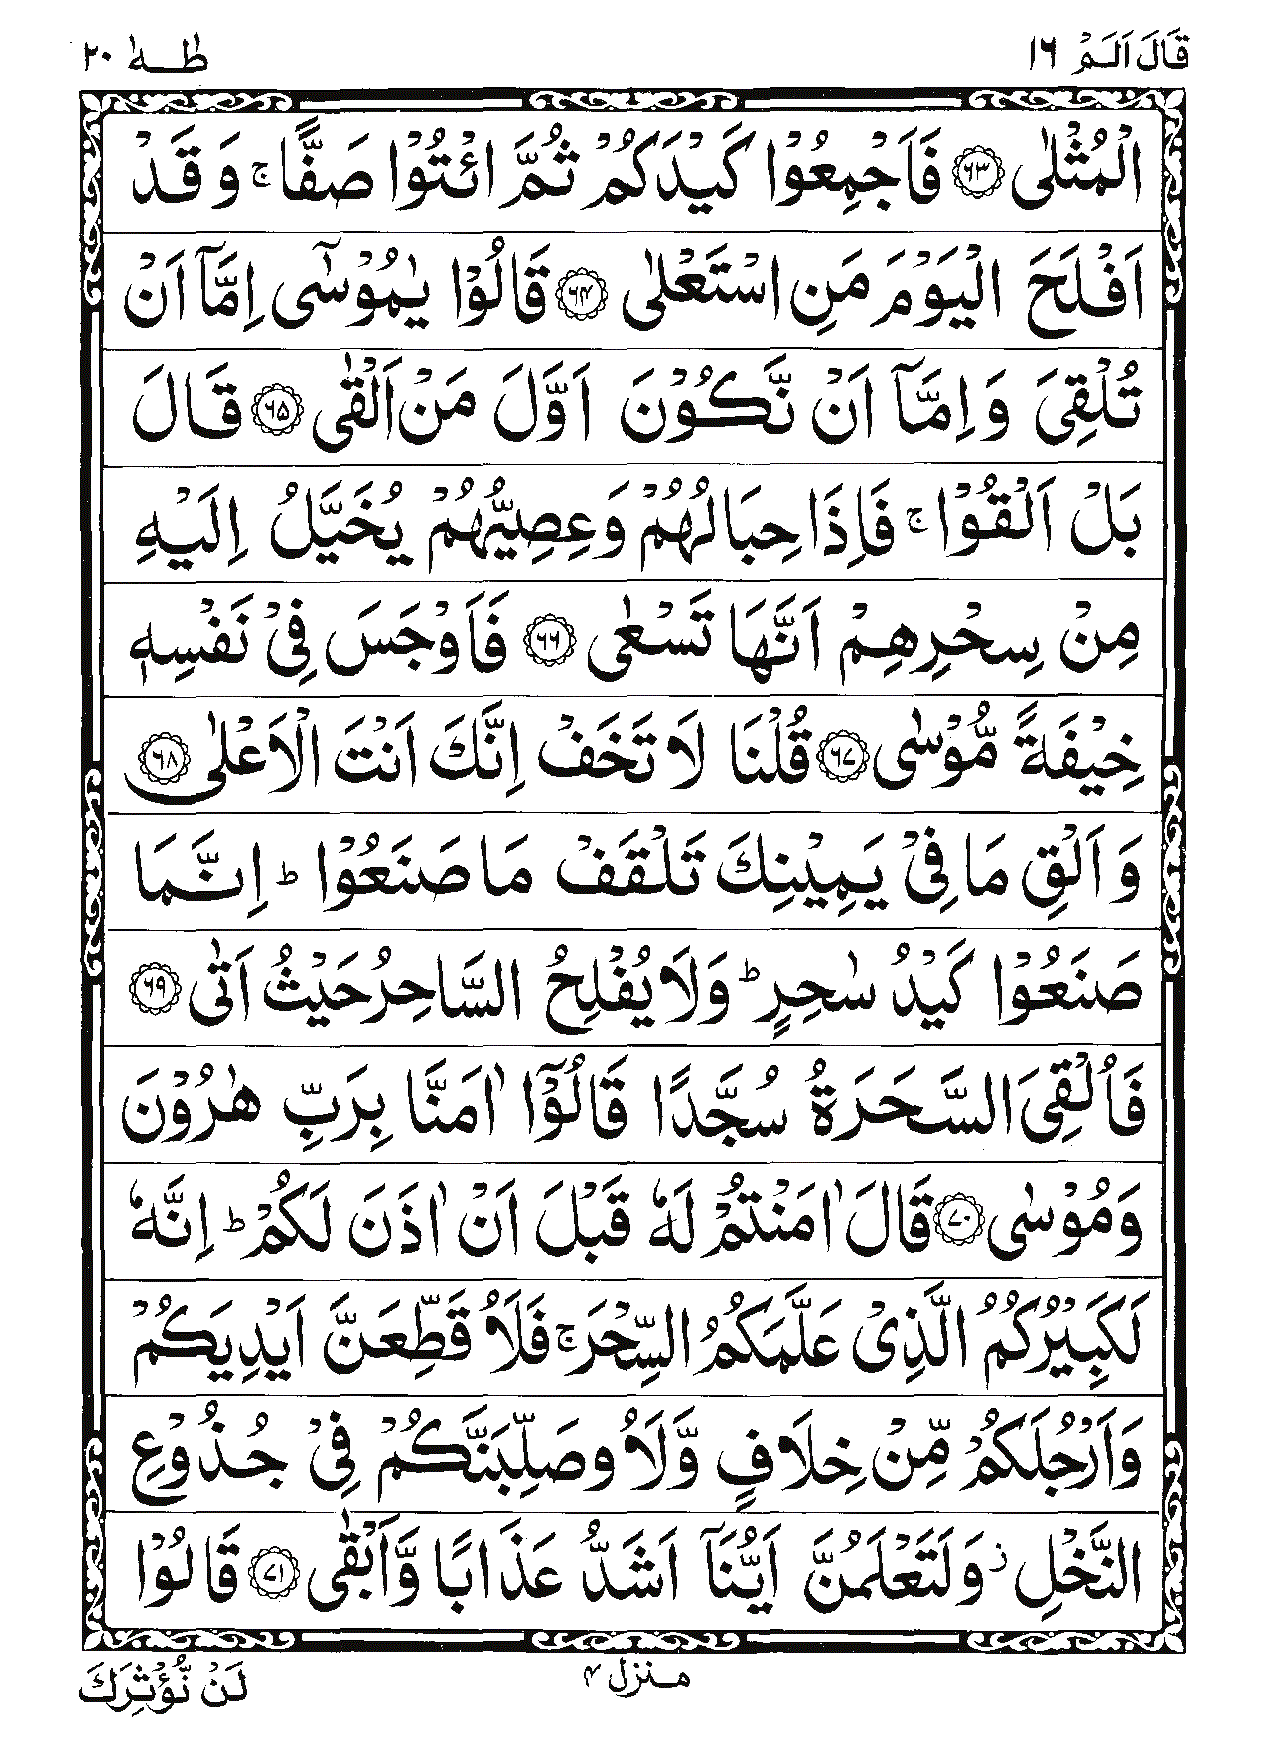 قَالَ اَلَمْ ١٦ طٰهٰ ٢٠
الْمُثْلٰى ﴿٦٣﴾ فَاَجْمِعُوْا كَيْدَكُمْ ثُمَّ ائْتُوْا صَفًّا ۚ وَ قَدْ
اَفْلَحَ الْيَوْمَ مَنِ اسْتَعْلٰى ﴿٦٤﴾ قَالُوْا يٰمُوْسٰٓى اِمَّآ اَنْ
تُلْقِىَ وَ اِمَّآ اَنْ نَّكُوْنَ اَوَّلَ مَنْ اَلْقٰى ﴿٦٥﴾ قَالَ
بَلْ اَلْقُوْا ۚ فَاِذَا حِبَالُهُمْ وَعِصِيُّهُمْ يُخَيَّلُ اِلَيْهِ
مِنْ سِحْرِهِمْ اَنَّهَا تَسْعٰى ﴿٦٦﴾ فَاَوْجَسَ فِىْ نَفْسِهٖ
خِيْفَةً مُّوْسٰى ﴿٦٧﴾ قُلْنَا لَا تَخَفْ اِنَّكَ اَنْتَ الْاَعْلٰى ﴿٦٨﴾
وَ اَلْقِ مَا فِىْ يَمِيْنِكَ تَلْقَفْ مَا صَنَعُوْا ؕ اِنَّمَا
صَنَعُوْا كَيْدُ سٰحِرٍ ؕ وَلَا يُفْلِحُ السَّاحِرُ حَيْثُ اَتٰى ﴿٦٩﴾
فَاُلْقِىَ السَّحَرَةُ سُجَّدًا قَالُوْٓا اٰمَنَّا بِرَبِّ هٰرُوْنَ
وَمُوْسٰى ﴿٧٠﴾ قَالَ اٰمَنْتُمْ لَهٗ قَبْلَ اَنْ اٰذَنَ لَكُمْ ؕ اِنَّهٗ
لَكَبِيْرُكُمُ الَّذِىْ عَلَّمَكُمُ السِّحْرَ ۚ فَلَاُ قَطِّعَنَّ اَيْدِيَكُمْ
وَاَرْجُلَكُمْ مِّنْ خِلَافٍ وَّلَاُ وصَلِّبَنَّكُمْ فِىْ جُذُوْعِ
النَّخْلِ ز وَلَتَعْلَمُنَّ اَيُّنَآ اَشَدُّ عَذَابًا وَّاَبْقٰى ﴿٧١﴾ قَالُوْا
منزل ٤
لَنْ نُّؤْثِرَكَ